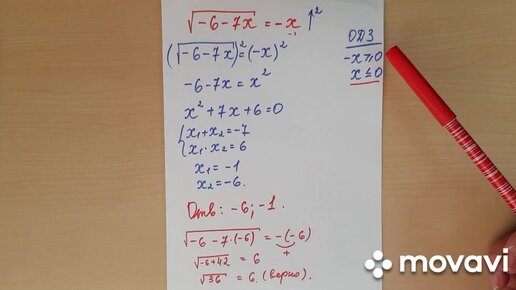 √-6-7x = -x ↑²
-1
ОДЗ
-x ≥ 0
x ≤ 0
(√-6-7x)² = (-x)²
-6-7x = x²
x²+7x+6=0
{x₁+x₂=-7
x₁·x₂=6
x₁=-1
x₂=-6.
Отв: -6; -1.
√-6-7·(-6) = -(-6)
+
√-6+42 = 6
√36 = 6. (верно).
movavi